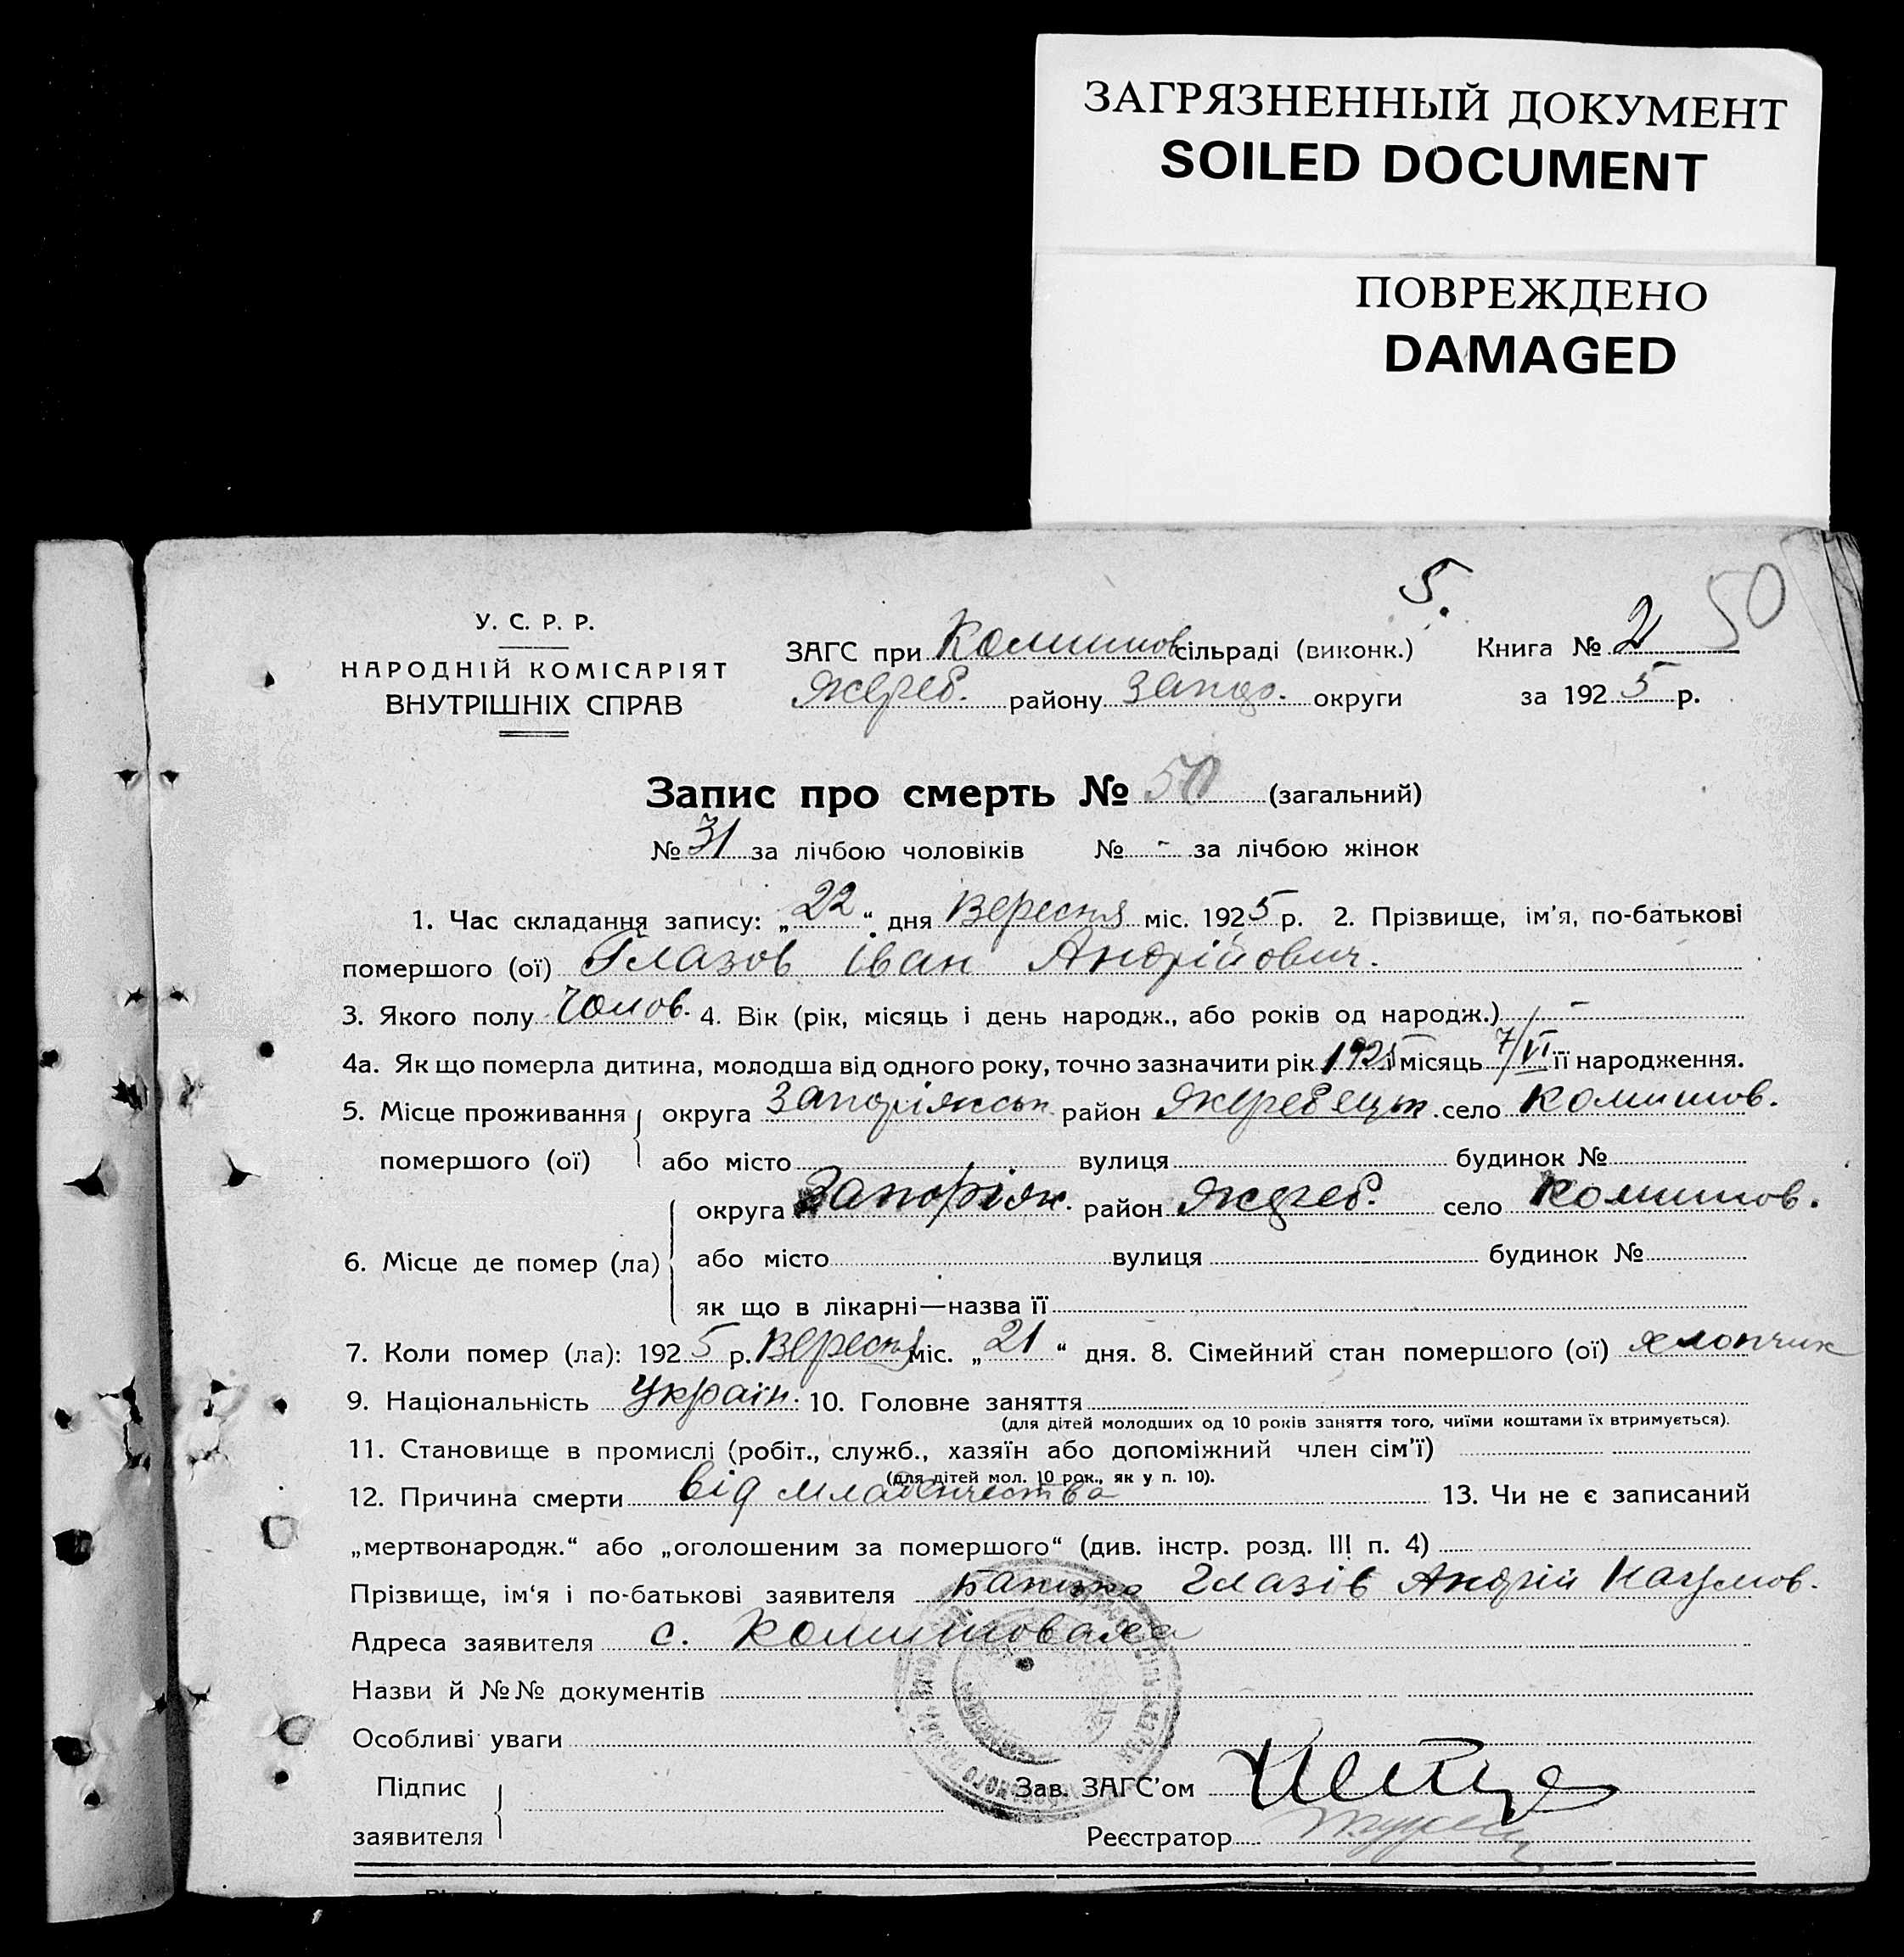 ЗАГРЯЗНЕННЫЙ ДОКУМЕНТ
SOILED DOCUMENT
ПОВРЕЖДЕНО
DAMAGED
5. 50
У. С. Р. Р.
НАРОДНІЙ КОМІСАРІЯТ
ВНУТРІШНІХ СПРАВ
ЗАГС при Комишов сільраді (виконк.) Книга № 2
Жереб. району Запор. округи за 1925 р.
Запис про смерть № 50 (загальний)
№ 31 за лічбою чоловіків № - за лічбою жінок
1. Час складання запису: „22“ дня Вересня міс. 1925 р. 2. Прізвище, ім'я, по-батькові
помершого (ої) Глазов Іван Андрійович.
3. Якого полу Чолов. 4. Вік (рік, місяць і день народж., або років од народж.) -
4а. Як що померла дитина, молодша від одного року, точно зазначити рік 1925 і місяць 7/VI її народження.
5. Місце проживання округа Запоріжськ. район Жеребецьк. село Комишов.
помершого (ої) або місто вулиця будинок №
округа Запоріж. район Жереб. село Комишов.
6. Місце де помер (ла) або місто вулиця будинок №
як що в лікарні—назва її
7. Коли помер (ла): 1925 р. Вересня міс. „21“ дня. 8. Сімейний стан помершого (ої) хлопчик
9. Національність Україн. 10. Головне заняття
(для дітей молодших од 10 років заняття того, чиїми коштами їх втримується).
11. Становище в промислі (робіт., служб., хазяїн або допоміжний член сім'ї)
(для дітей мол. 10 рок., як у п. 10).
12. Причина смерти від младенчества 13. Чи не є записаний
„мертвонародж.“ або „оголошеним за помершого“ (див. інстр. розд. III п. 4)
Прізвище, ім'я і по-батькові заявителя Батько Глазів Андрій Наумов.
Адреса заявителя с. Комишоваха
Назви й №№ документів
Особливі уваги
Підпис
заявителя
Зав. ЗАГС'ом
Реєстратор